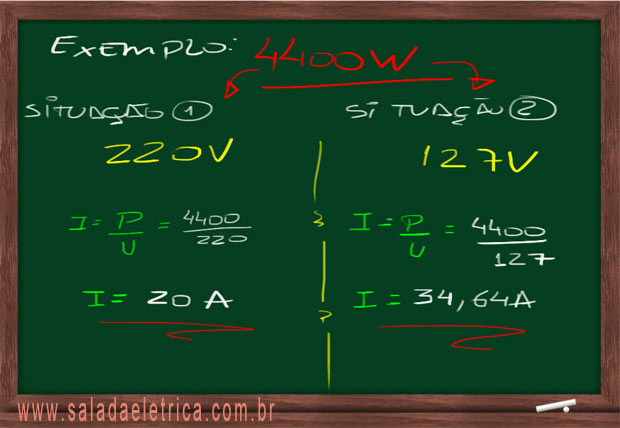 EXEMPLO: 4400W
SITUAÇÃO 1
220V
I = P/U = 4400/220
I = 20 A
SITUAÇÃO 2
127V
I = P/U = 4400/127
I = 34,64A
www.saladaeletrica.com.br